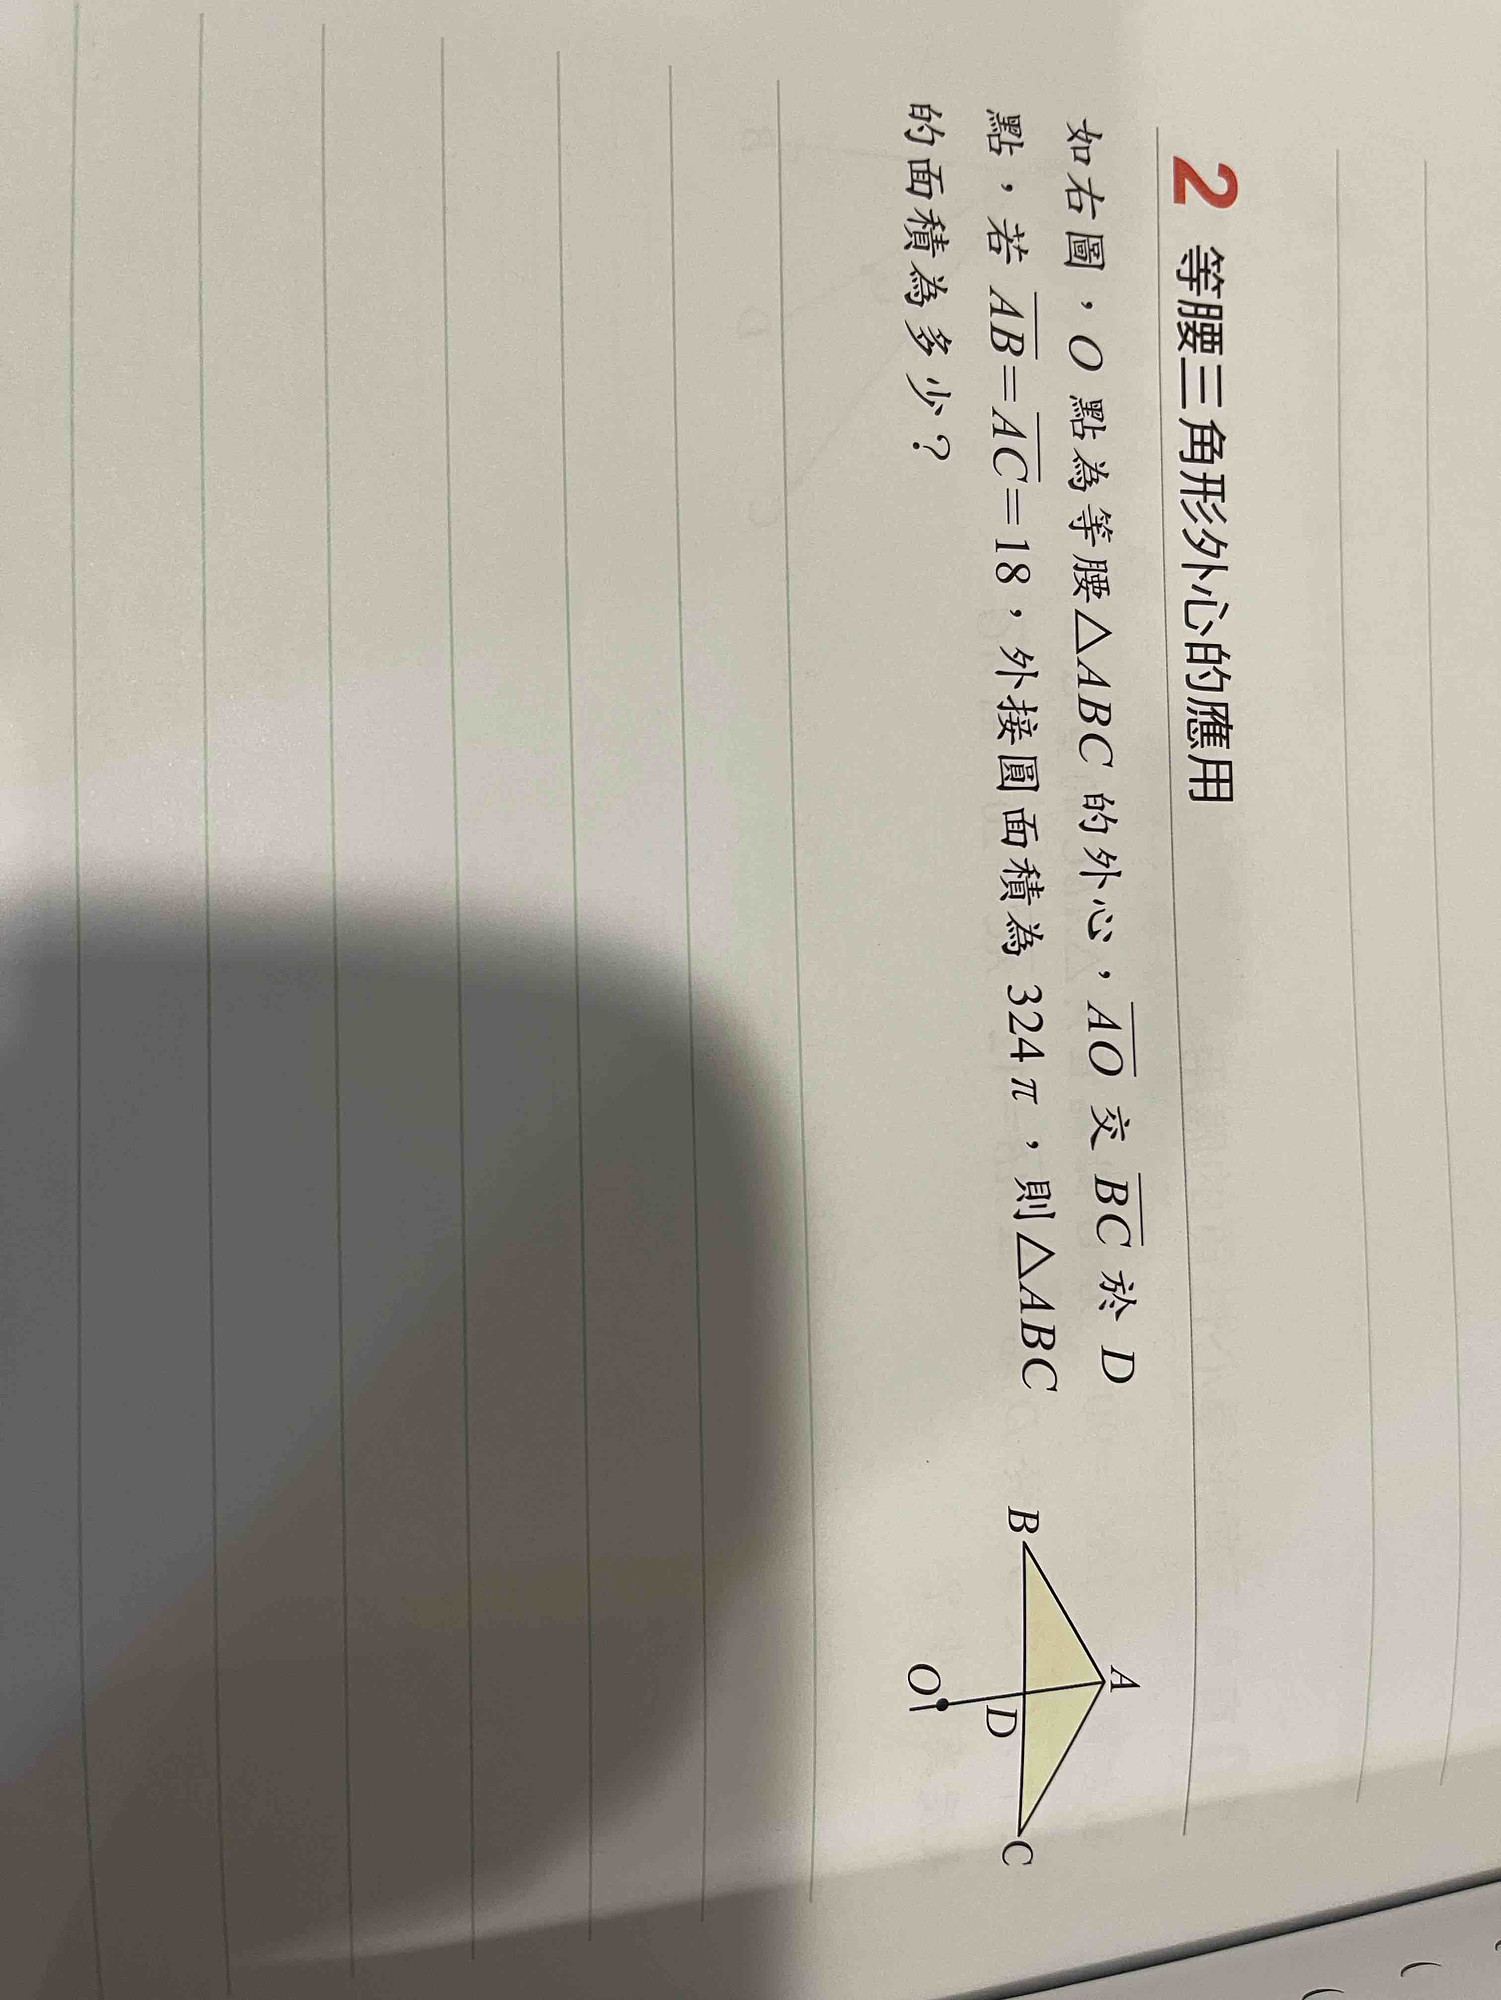 2 等腰三角形外心的應用
如右圖，O 點為等腰△ABC 的外心，AO 交 BC 於 D
點，若 AB=AC=18，外接圓面積為 324π，則△ABC
的面積為多少？
A
B
D
C
O